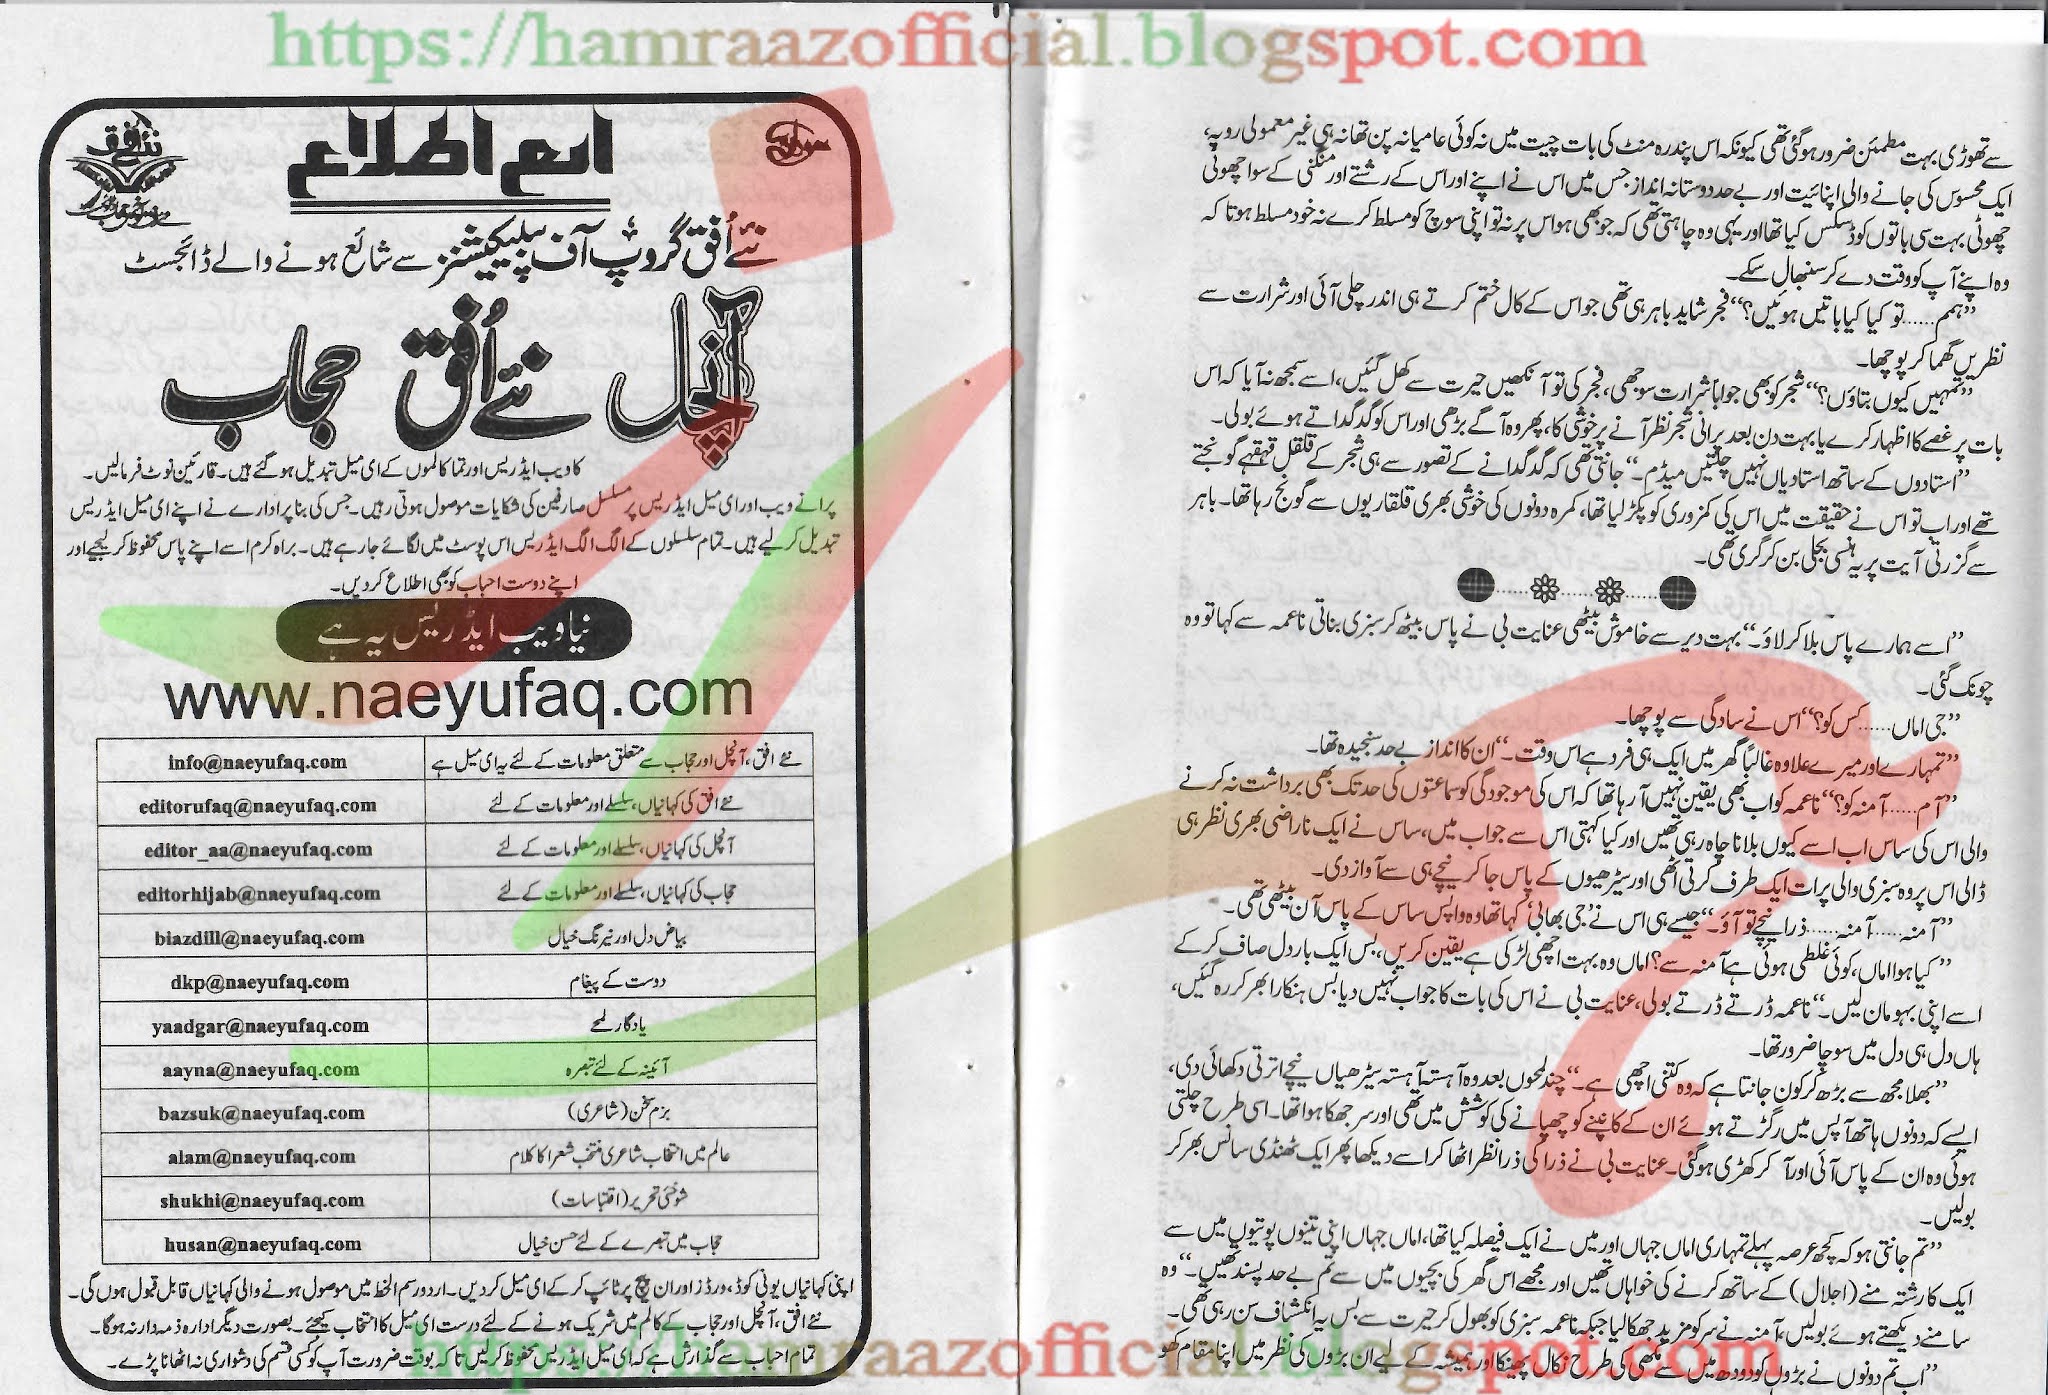 https://hamraazofficial.blogspot.com
سے تھوڑی بہت مطمئن ضرور ہوگئی تھی کیونکہ اس پندرہ منٹ کی بات چیت میں نہ کوئی عامیانہ پن تھا نہ ہی غیر معمولی رویہ،
ایک محسوس کی جانے والی اپنائیت اور بے حد دوستانہ انداز جس میں اس نے اپنے اور اس کے رشتے اور منگنی کے سوا چھوٹی
چھوٹی بہت سی باتوں کو ڈسکس کیا تھا اور یہی وہ چاہتی تھی کہ جو بھی ہو اس پر نہ تو اپنی سوچ کو مسلط کرے نہ خود مسلط ہو تا کہ
وہ اپنے آپ کو وقت دے کر سنبھال سکے۔
”ہمم......تو کیا کیا باتیں ہوئیں؟“ فجر شاید باہر ہی تھی جو اس کے کال ختم کرتے ہی اندر چلی آئی اور شرارت سے
نظریں گھما کر پوچھا۔
”تمہیں کیوں بتاؤں؟“ شجر کو بھی جواباً شرارت سوجھی، فجر کی تو آنکھیں حیرت سے کھل گئیں، اسے سمجھ نہ آیا کہ اس
بات پر غصے کا اظہار کرے یا بہت دن بعد پرانی شجر نظر آنے پر خوشی کا، پھر وہ آگے بڑھی اور اس کو گدگداتے ہوئے بولی۔
”استادوں کے ساتھ استادیاں نہیں چلتیں میڈم۔“ جانتی تھی کہ گدگدانے کے تصور سے ہی شجر کے قلقل قہقہے گونجتے
تھے اور اب تو اس نے حقیقت میں اس کی کمزوری کو پکڑ لیا تھا، کمرہ دونوں کی خوشی بھری قلقاریوں سے گونج رہا تھا۔ باہر
سے گزرتی آیت پر یہ ہنسی بجلی بن کر گری تھی۔
”اسے ہمارے پاس بلا کر لاؤ۔“ بہت دیر سے خاموش بیٹھی عنایت بی نے پاس بیٹھ کر سبزی بناتی ناعمہ سے کہا تو وہ
چونک گئی۔
”جی اماں......کس کو؟“ اس نے سادگی سے پوچھا۔
”تمہارے اور میرے علاوہ غالباً گھر میں ایک ہی فرد ہے اس وقت۔“ ان کا انداز بے حد سنجیدہ تھا۔
”آم......آمنہ کو؟“ ناعمہ کو اب بھی یقین نہیں آ رہا تھا کہ اس کی موجودگی کو سماعتوں کی حد تک بھی برداشت نہ کرنے
والی اس کی ساس اب اسے کیوں بلانا چاہ رہی تھیں اور کیا کہتی اس سے جواب میں، ساس نے ایک ناراضی بھری نظر ہی
ڈالی اس پر وہ سبزی والی پرات ایک طرف کرتی اٹھی اور سیڑھیوں کے پاس جا کر نیچے ہی سے آواز دی۔
”آمنہ......آمنہ......ذرا نیچے تو آؤ۔“ جیسے ہی اس نے ’جی بھابی‘ کہا تھا وہ واپس ساس کے پاس آن بیٹھی تھی۔
”کیا ہوا اماں، کوئی غلطی ہوئی ہے آمنہ سے؟ اماں وہ بہت اچھی لڑکی ہے یقین کریں، بس ایک بار دل صاف کر کے
اسے اپنی بہو مان لیں۔“ ناعمہ ڈرتے ڈرتے بولی، عنایت بی نے اس کی بات کا جواب نہیں دیا بس ہنکارا بھر کر رہ گئیں،
ہاں دل ہی دل میں سوچا ضرور تھا۔
”بھلا مجھ سے بڑھ کر کون جانتا ہے کہ وہ کتنی اچھی ہے۔“ چند لمحوں بعد وہ آہستہ آہستہ سیڑھیاں نیچے اترتی دکھائی دی،
ایسے کہ دونوں ہاتھ آپس میں رگڑتے ہوئے ان کے کانپنے کو چھپانے کی کوشش میں تھی اور سر جھکا ہوا تھا۔ اسی طرح چلتی
ہوئی وہ ان کے پاس آئی اور آ کر کھڑی ہوگئی۔ عنایت بی نے ذرا کی ذرا نظر اٹھا کر اسے دیکھا پھر ایک ٹھنڈی سانس بھر کر
بولیں۔
”تم جانتی ہو کہ کچھ عرصہ پہلے تمہاری اماں جہاں اور میں نے ایک فیصلہ کیا تھا، اماں جہاں اپنی تینوں پوتیوں میں سے
ایک کا رشتہ منے (اجلال) کے ساتھ کرنے کی خواہاں تھیں اور مجھے اس گھر کی بچیوں میں سے تم بے حد پسند تھیں۔“ وہ
سامنے دیکھتے ہوئے بولیں، آمنہ نے سر کو مزید جھکا لیا جبکہ ناعمہ سبزی کو بھول کر حیرت سے بس یہ انکشاف سن رہی تھی۔
”اب تم دونوں نے بڑوں کو دودھ میں سے مکھی کی طرح نکال پھینکا اور ہمیشہ کے لیے ان بڑوں کی نظر میں اپنا مقام کھو
نئے افق
اہم اطلاع
نئے اُفق گروپ آف پبلیکیشنز سے شائع ہونے والے ڈائجسٹ
آنچل نئے اُفق حجاب
کا ویب ایڈریس اور تمام کالموں کے ای میل تبدیل ہو گئے ہیں۔ قارئین نوٹ فرمالیں۔
پرانے ویب اور ای میل ایڈریس پر مسلسل صارفین کی شکایات موصول ہوتی رہیں۔ جس کی بنا پر ادارے نے اپنے ای میل ایڈریس
تبدیل کر لیے ہیں۔ تمام سلسلوں کے الگ الگ ایڈریس اس پوسٹ میں لگائے جا رہے ہیں۔ براہ کرم اسے اپنے پاس محفوظ کر لیجیے اور
اپنے دوست احباب کو بھی اطلاع کر دیں۔
نیا ویب ایڈریس یہ ہے
www.naeyufaq.com
نئے افق، آنچل اور حجاب سے متعلق معلومات کے لئے یہ ای میل ہے info@naeyufaq.com
نئے افق کی کہانیاں، سلسلے اور معلومات کے لئے editorufaq@naeyufaq.com
آنچل کی کہانیاں، سلسلے اور معلومات کے لئے editor_aa@naeyufaq.com
حجاب کی کہانیاں، سلسلے اور معلومات کے لئے editorhijab@naeyufaq.com
بیاض دل اور نیرنگ خیال biazdill@naeyufaq.com
دوست کے پیغام dkp@naeyufaq.com
یادگار لمحے yaadgar@naeyufaq.com
آئینہ کے لئے تبصرہ aayna@naeyufaq.com
بزم سخن (شاعری) bazsuk@naeyufaq.com
عالم میں انتخاب شاعری منتخب شعرا کا کلام alam@naeyufaq.com
شوخی تحریر (اقتباسات) shukhi@naeyufaq.com
حجاب میں تبصرے کے لئے حسن خیال husan@naeyufaq.com
اپنی کہانیاں یونی کوڈ، ورڈز اور ان پیج پر ٹائپ کر کے ای میل کر دیں۔ اردو رسم الخط میں موصول ہونے والی کہانیاں قابل قبول ہوں گی۔
نئے افق، آنچل اور حجاب کے کالم میں شریک ہونے کے لئے درست ای میل کا انتخاب کیجئے۔ بصورت دیگر ادارہ ذمہ دار نہ ہوگا۔
تمام احباب سے گذارش ہے کہ ای میل ایڈریس محفوظ کر لیں تاکہ بوقت ضرورت آپ کو کسی قسم کی دشواری نہ اٹھانا پڑے۔
https://hamraazofficial.blogspot.com